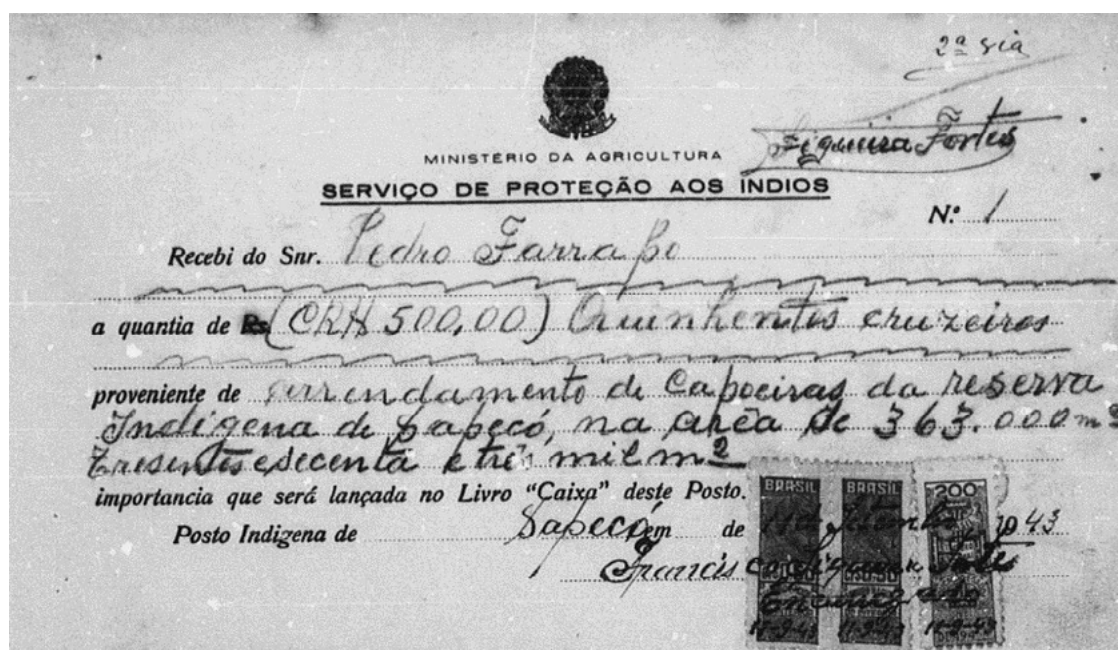 2ª via
Figueira Fortes
MINISTÉRIO DA AGRICULTURA
SERVIÇO DE PROTEÇÃO AOS ÍNDIOS
N.º 1
Recebi do Snr. Pedro Farrapo
a quantia de Rs. (CR$ 500,00) Quinhentos cruzeiros
proveniente de arrendamento de Capoeiras da reserva
Indigena de Xapecó, na area de 363.000 m2
Tresentos e secenta e três mil m2
importancia que será lançada no Livro "Caixa" deste Posto.
Posto Indigena de Xapecó, em de 11 de Setembro 1943
BRASIL BRASIL 200
Francisco Siqueira Fortes
Encarregado
11-9-43 11-9-43 11-9-43